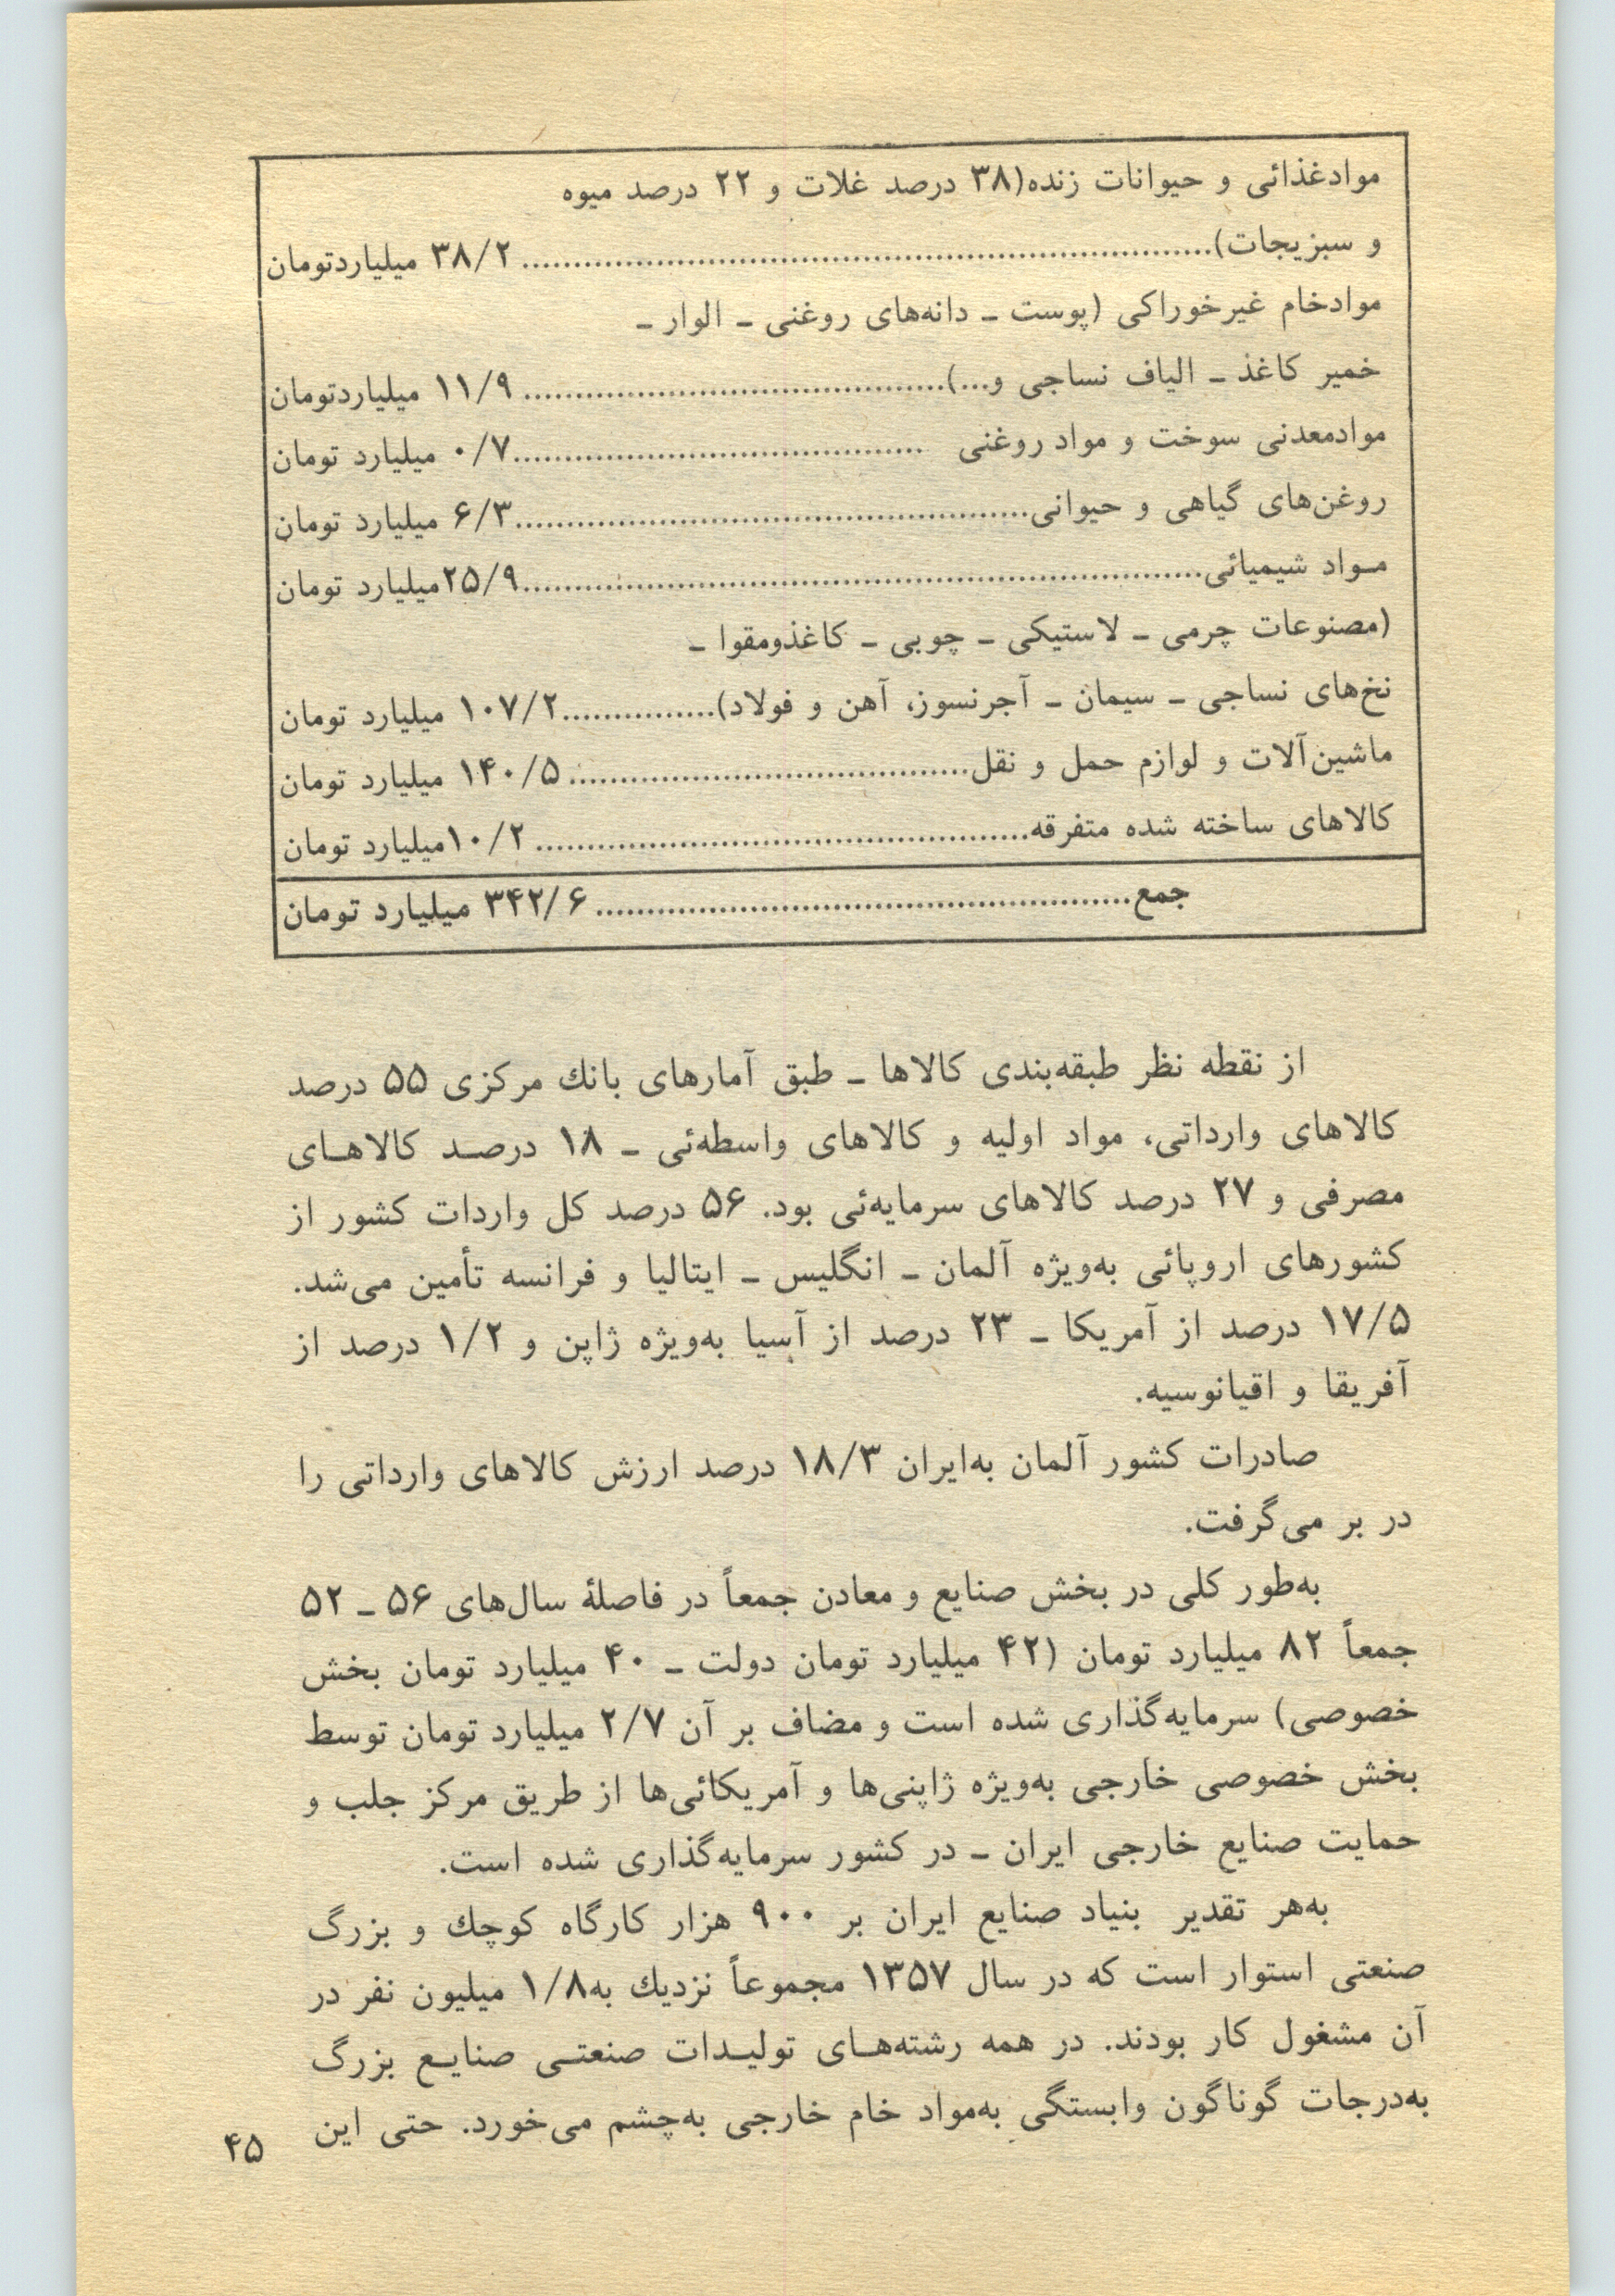 موادغذائی و حیوانات زنده(۳۸ درصد غلات و ۲۲ درصد میوه
و سبزیجات)........................................ ۳۸/۲ میلیاردتومان
موادخام غیرخوراکی (پوست ـ دانه‌های روغنی ـ الوار ـ
خمیر کاغذ ـ الیاف نساجی و...)........................................ ۱۱/۹ میلیاردتومان
موادمعدنی سوخت و مواد روغنی ........................................۰/۷ میلیارد تومان
روغن‌های گیاهی و حیوانی........................................۶/۳ میلیارد تومان
مـواد شیمیائی........................................۲۵/۹میلیارد تومان
(مصنوعات چرمی ـ لاستیکی ـ چوبی ـ کاغذومقوا ـ
نخ‌های نساجی ـ سیمان ـ آجرنسوز، آهن و فولاد)...............۱۰۷/۲ میلیارد تومان
ماشین‌آلات و لوازم حمل و نقل........................................ ۱۴۰/۵ میلیارد تومان
کالاهای ساخته شده متفرقه........................................ ۱۰/۲میلیارد تومان
جمع........................................ ۳۴۲/۶ میلیارد تومان
از نقطه نظر طبقه‌بندی کالاها ـ طبق آمارهای بانك مرکزی ۵۵ درصد
کالاهای وارداتی، مواد اولیه و کالاهای واسطه‌ئی ـ ۱۸ درصـد کالاهـای
مصرفی و ۲۷ درصد کالاهای سرمایه‌ئی بود. ۵۶ درصد کل واردات کشور از
کشورهای اروپائی به‌ویژه آلمان ـ انگلیس ـ ایتالیا و فرانسه تأمین می‌شد.
۱۷/۵ درصد از آمریکا ـ ۲۳ درصد از آسیا به‌ویژه ژاپن و ۱/۲ درصد از
آفریقا و اقیانوسیه.
صادرات کشور آلمان به‌ایران ۱۸/۳ درصد ارزش کالاهای وارداتی را
در بر می‌گرفت.
به‌طور کلی در بخش صنایع و معادن جمعاً در فاصلۀ سال‌های ۵۶ ـ ۵۲
جمعاً ۸۲ میلیارد تومان (۴۲ میلیارد تومان دولت ـ ۴۰ میلیارد تومان بخش
خصوصی) سرمایه‌گذاری شده است و مضاف بر آن ۲/۷ میلیارد تومان توسط
بخش خصوصی خارجی به‌ویژه ژاپنی‌ها و آمریکائی‌ها از طریق مرکز جلب و
حمایت صنایع خارجی ایران ـ در کشور سرمایه‌گذاری شده است.
به‌هر تقدیر بنیاد صنایع ایران بر ۹۰۰ هزار کارگاه کوچك و بزرگ
صنعتی استوار است که در سال ۱۳۵۷ مجموعاً نزدیك به۱/۸ میلیون نفر در
آن مشغول کار بودند. در همه رشته‌هـای تولیـدات صنعتـی صنایـع بزرگ
به‌درجات گوناگون وابستگی به‌مواد خام خارجی به‌چشم می‌خورد. حتی این
۴۵